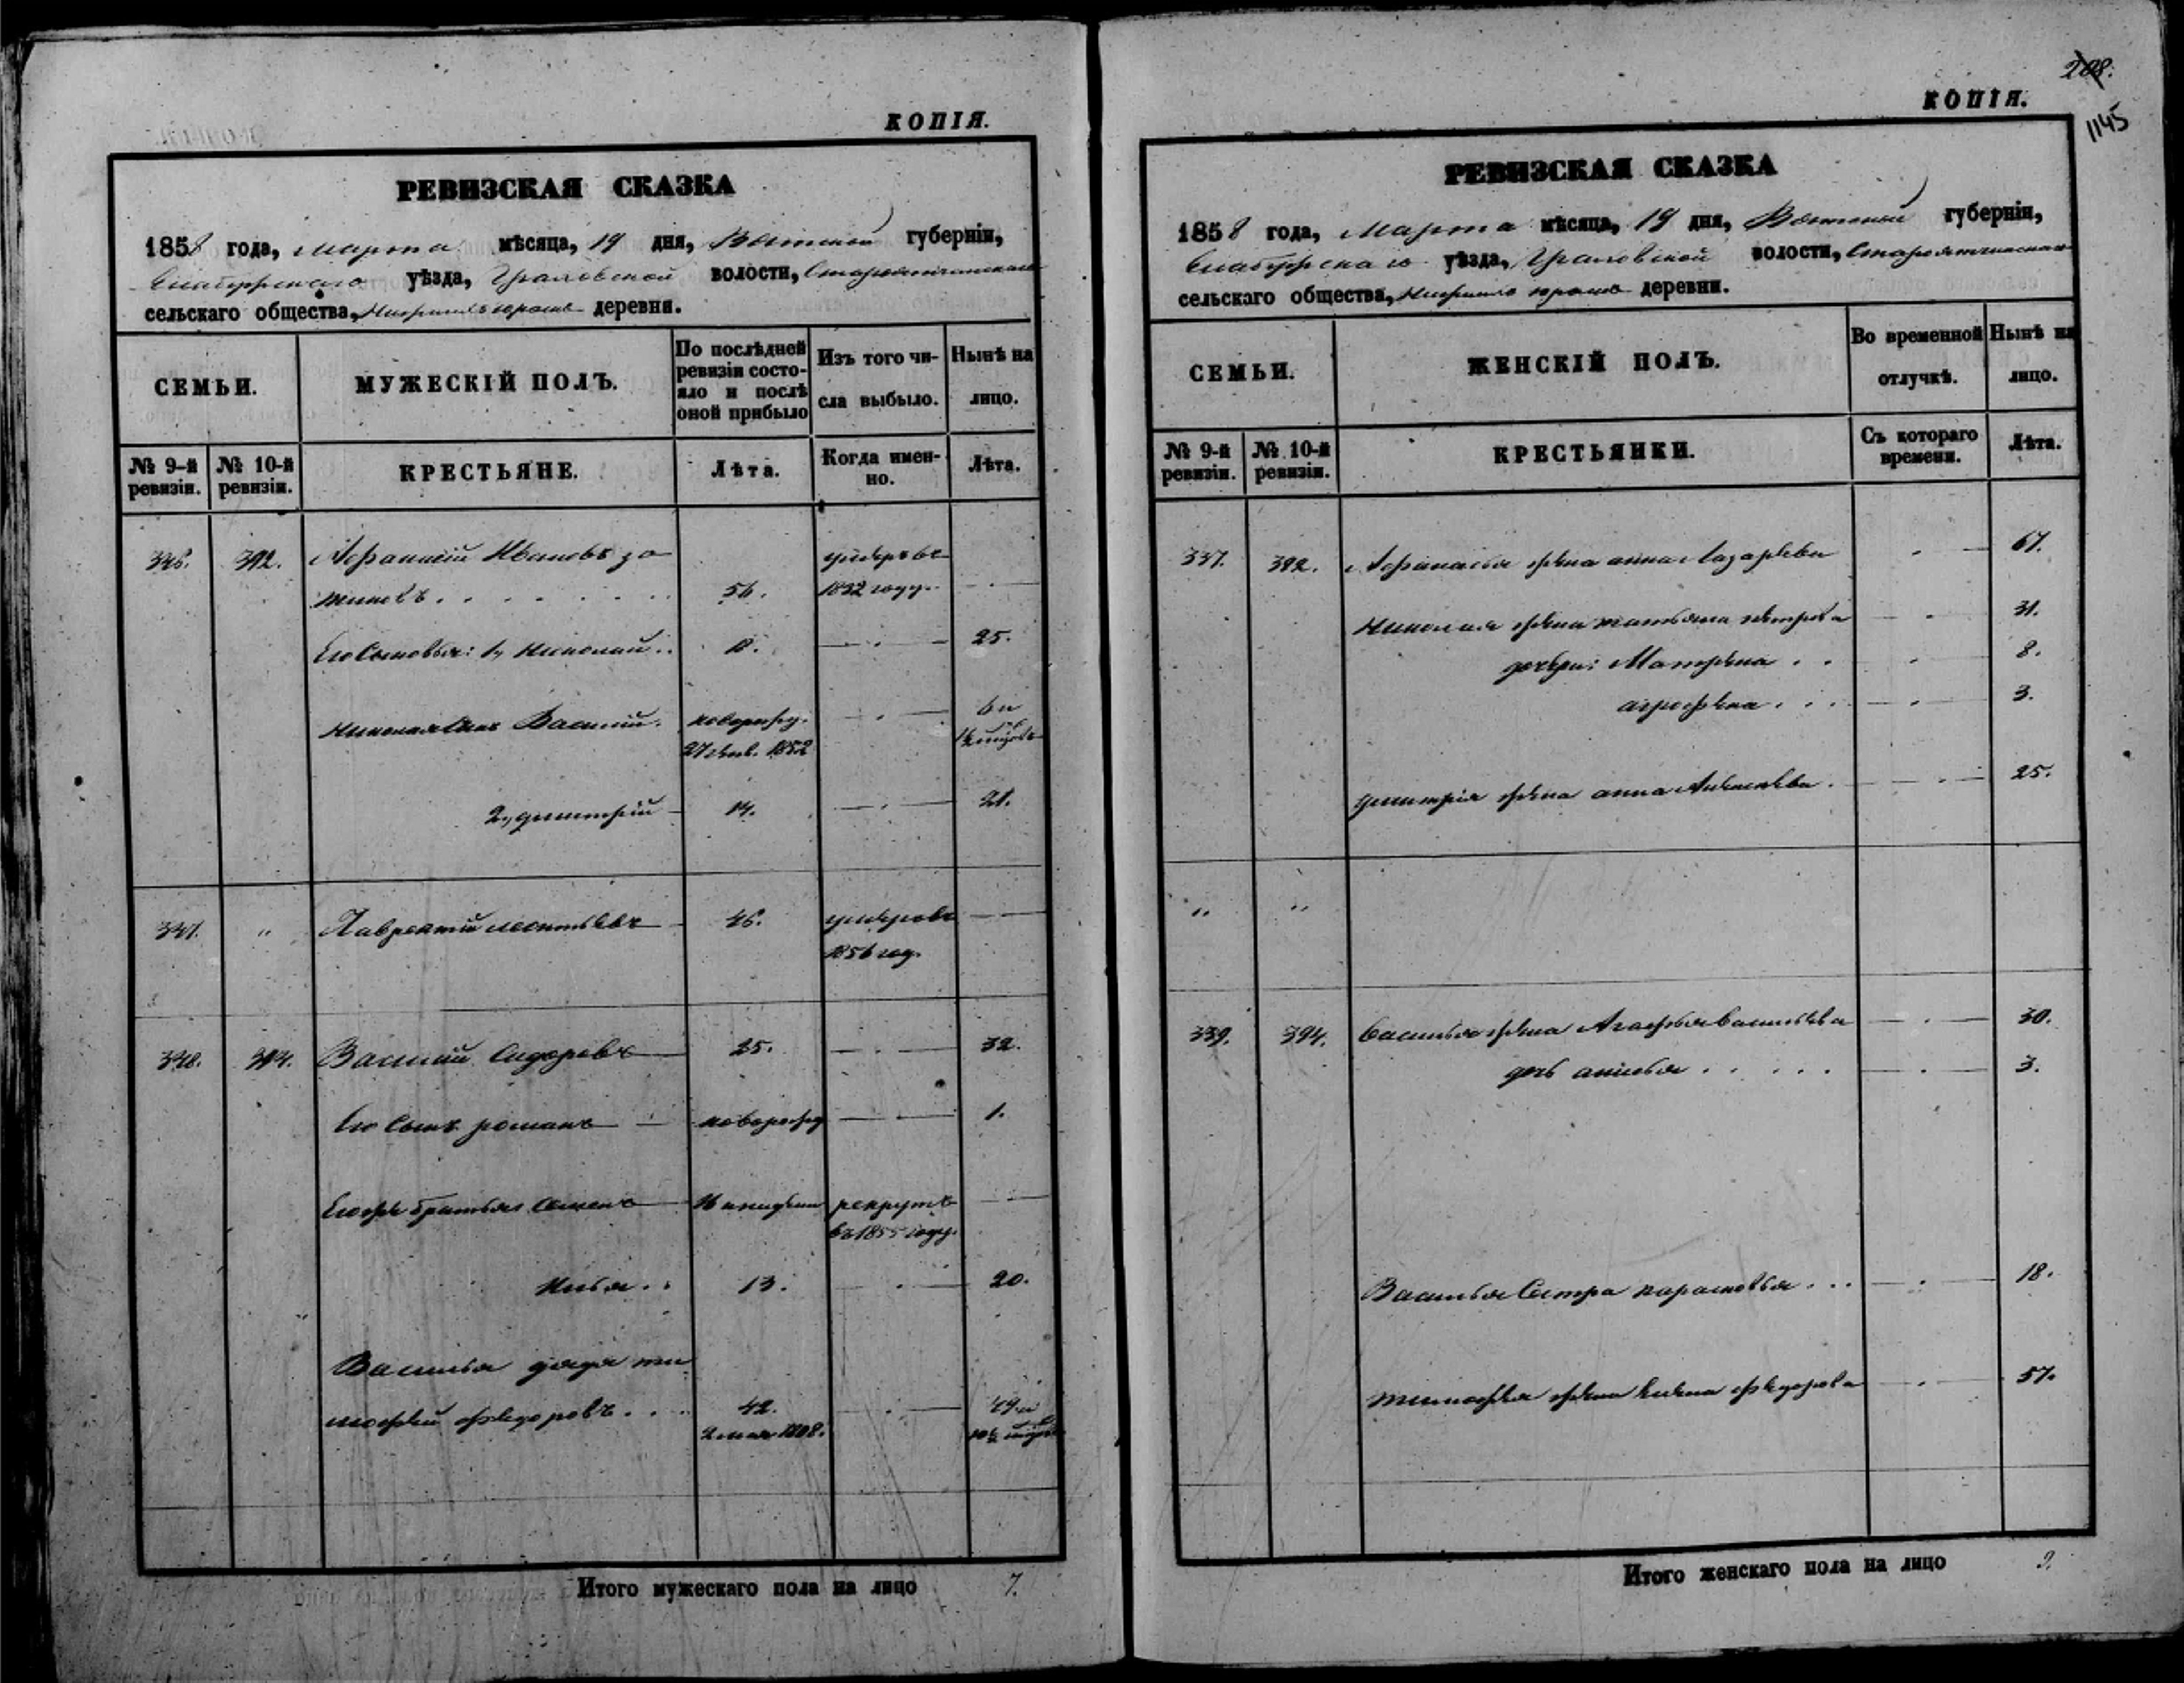 КОПІЯ.
РЕВИЗСКАЯ СКАЗКА
1858 года, марта мѣсяца, 19 дня, Вятской губерніи,
Елабужскаго уѣзда, Граховской волости, Староятчинскаго
сельскаго общества, деревни.
СЕМЬИ.
МУЖЕСКІЙ ПОЛЪ.
По послѣдней
ревизіи состо-
яло и послѣ
оной прибыло
Изъ того чи-
сла выбыло.
Нынѣ на
лицо.
№ 9-й
ревизіи.
№ 10-й
ревизіи.
КРЕСТЬЯНЕ.
Лѣта.
Когда имен-
но.
Лѣта.
392. Афанасій Ивановъ умеръ въ
56.
Его Сыновья: 1, Николай 25.
Николая Сынъ Василій. новорожд. 6 и
27 1852
2, дмитрій 14. 21.
337. " Лаврентій леонтьевъ 46. умеръ въ
1856 год.
338. 394. Василій Сидоровъ 25. 32.
Его Сынъ романъ новорожд 1.
Егожъ братья Семенъ рекрутъ
въ 1855 году.
Илья 13. 20.
Василья дядя ти
мофей федоровъ 42. 49 и
2 мая 1808.
Итого мужескаго пола на лицо 7.
208.
1145
КОПІЯ.
РЕВИЗСКАЯ СКАЗКА
1858 года, Марта мѣсяца, 19 дня, Вятской губерніи,
Елабужскаго уѣзда, Граховской волости, Староятчинскаго
сельскаго общества, деревни.
СЕМЬИ.
ЖЕНСКІЙ ПОЛЪ.
Во временной
отлучкѣ.
Нынѣ на
лицо.
№ 9-й
ревизіи.
№ 10-й
ревизіи.
КРЕСТЬЯНКИ.
Съ котораго
времени.
Лѣта.
337. 392. Афанасья жена анна Лазарева 67.
Николая жена татьяна петрова 31.
дочери: Матрена 8.
агрофена 3.
дмитрія жена анна Алексеева 25.
" "
339. 394. Василья жена Агафья васильева 30.
дочь 3.
Василья Сестра парасковья 18.
тимофея жена елена федорова 57.
Итого женскаго пола на лицо 9.